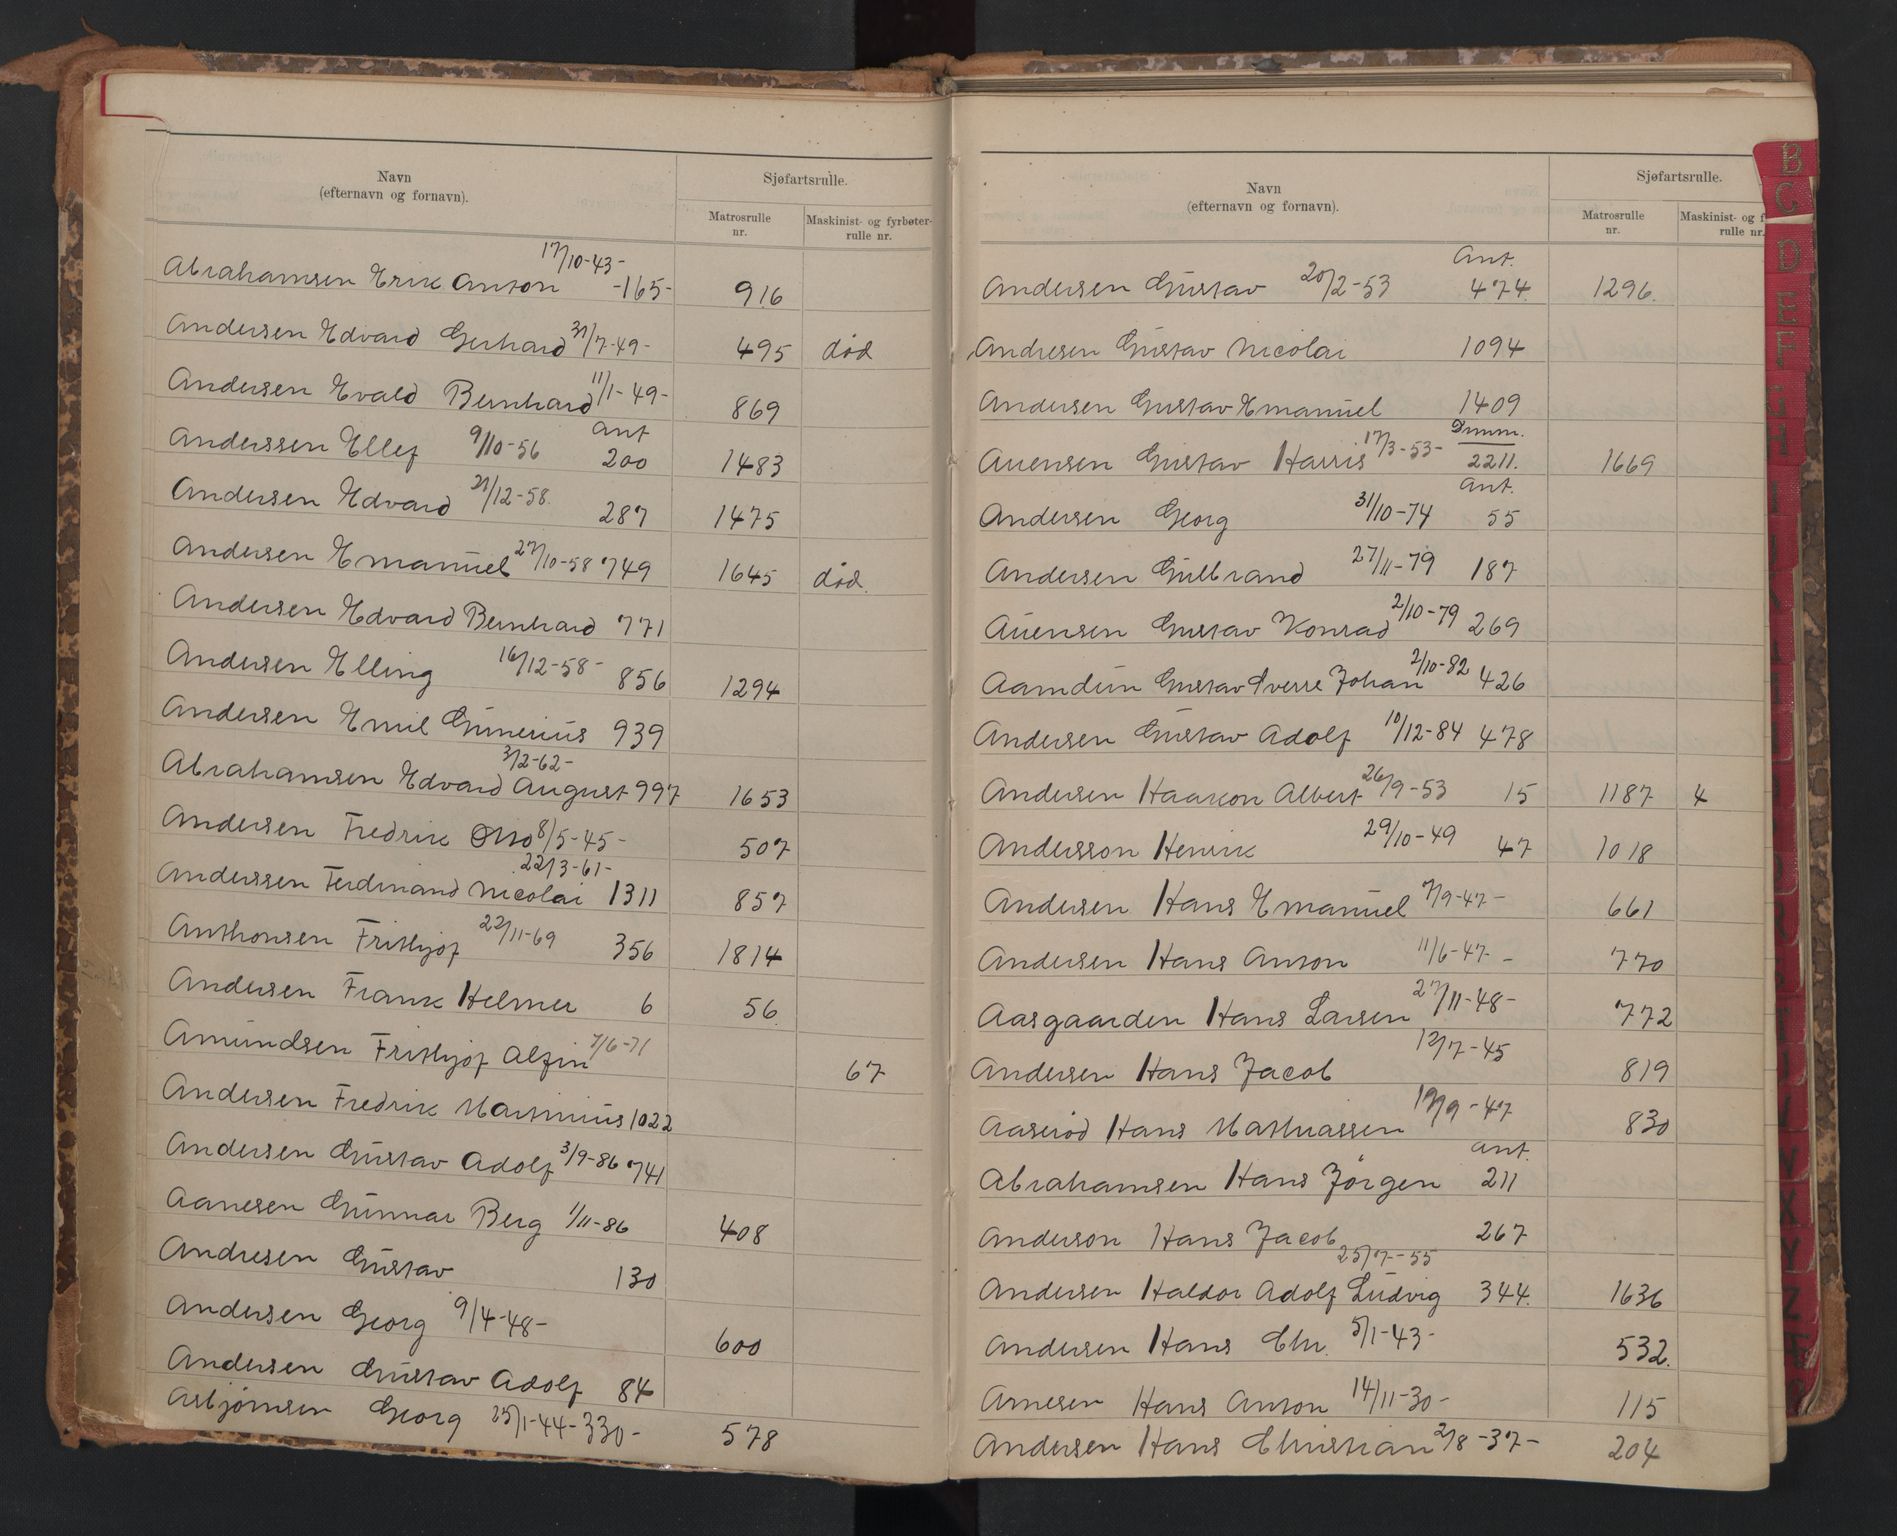 Navn
(efternavn og fornavn).
Sjøfartsrulle.
Matrosrulle
nr.
Maskinist- og fyrbøter-
rulle nr.
Abrahamsen Erik Anton 17/10-43- -165- 916
Andersen Edvard Gerhard 31/7-49- 495 død
Andersen Evald Bernhard 11/1-49- 869
Anderssen Ellef 9/10-56 Ant 200 1483
Andersen Edvard 21/12-58. 287 1475
Andersen Emanuel 27/10-58 749 1645 død.
Andersen Edvard Bernhard 771
Andersen Elling 16/12-58- 856 1294
Andersen Emil Gunerius 939
Abrahamsen Edvard August 3/2-62- 997 1653
Andersen Fredrik Otto 8/5-45- 507
Anderssen Ferdinand Nicolai 22/3-61- 1311 857
Anthonsen Frithjof 22/11-69 356 1814
Andersen Frank Helmer 6 56
Amundsen Frithjof Alfin 7/6-71 67
Andersen Fredrik Martinius 1022
Andersen Gustav Adolf 3/9-86 741
Aanesen Gunnar Berg 1/11-86 408
Andresen Gustav 130
Andersen Georg 9/4-48- 600
Andersen Gustav Adolf 84
Asbjørnsen Georg 25/1-44-330- 578
Navn
(efternavn og fornavn).
Sjøfartsrulle.
Matrosrulle
nr.
Maskinist- og f
rulle nr.
Andersen Gustav 20/2-53 Ant. 474 1296
Andresen Gustav Nicolai 1094
Andersen Gustav Emanuel 1409
Auensen Gustav Harris 17/3-53- Dmm. 2211. 1669
Andersen Georg 31/10-74 Ant. 55
Andersen Gulbrand 27/11-79 187
Auensen Gustav Konrad 2/10-79 269
Aamdun Gustav Sverre Johan 2/10-82 426
Andersen Gustav Adolf 10/12-84 478
Andersen Haakon Albert 26/9-53 15 1187 4
Andersson Henrik 29/10-49 47 1018
Andersen Hans Emanuel 7/9-47- 661
Andersen Hans Anton 11/6-47- 770
Aasgaarden Hans Larsen 27/11-48- 772
Andersen Hans Jacob 12/7-45 819
Aaserød Hans Mathiassen 19/9-47 830
Abrahamsen Hans Jörgen Ant. 211
Anderson Hans Jacob 267
Andersen Haldor Adolf Ludvig 25/7-55 344. 1636
Andersen Hans Chr. 5/1-43- 532.
Arnesen Hans Anton 14/11-30- 115
Andersen Hans Christian 2/8-37- 204
B
C
D
E
F
X
Y
Z